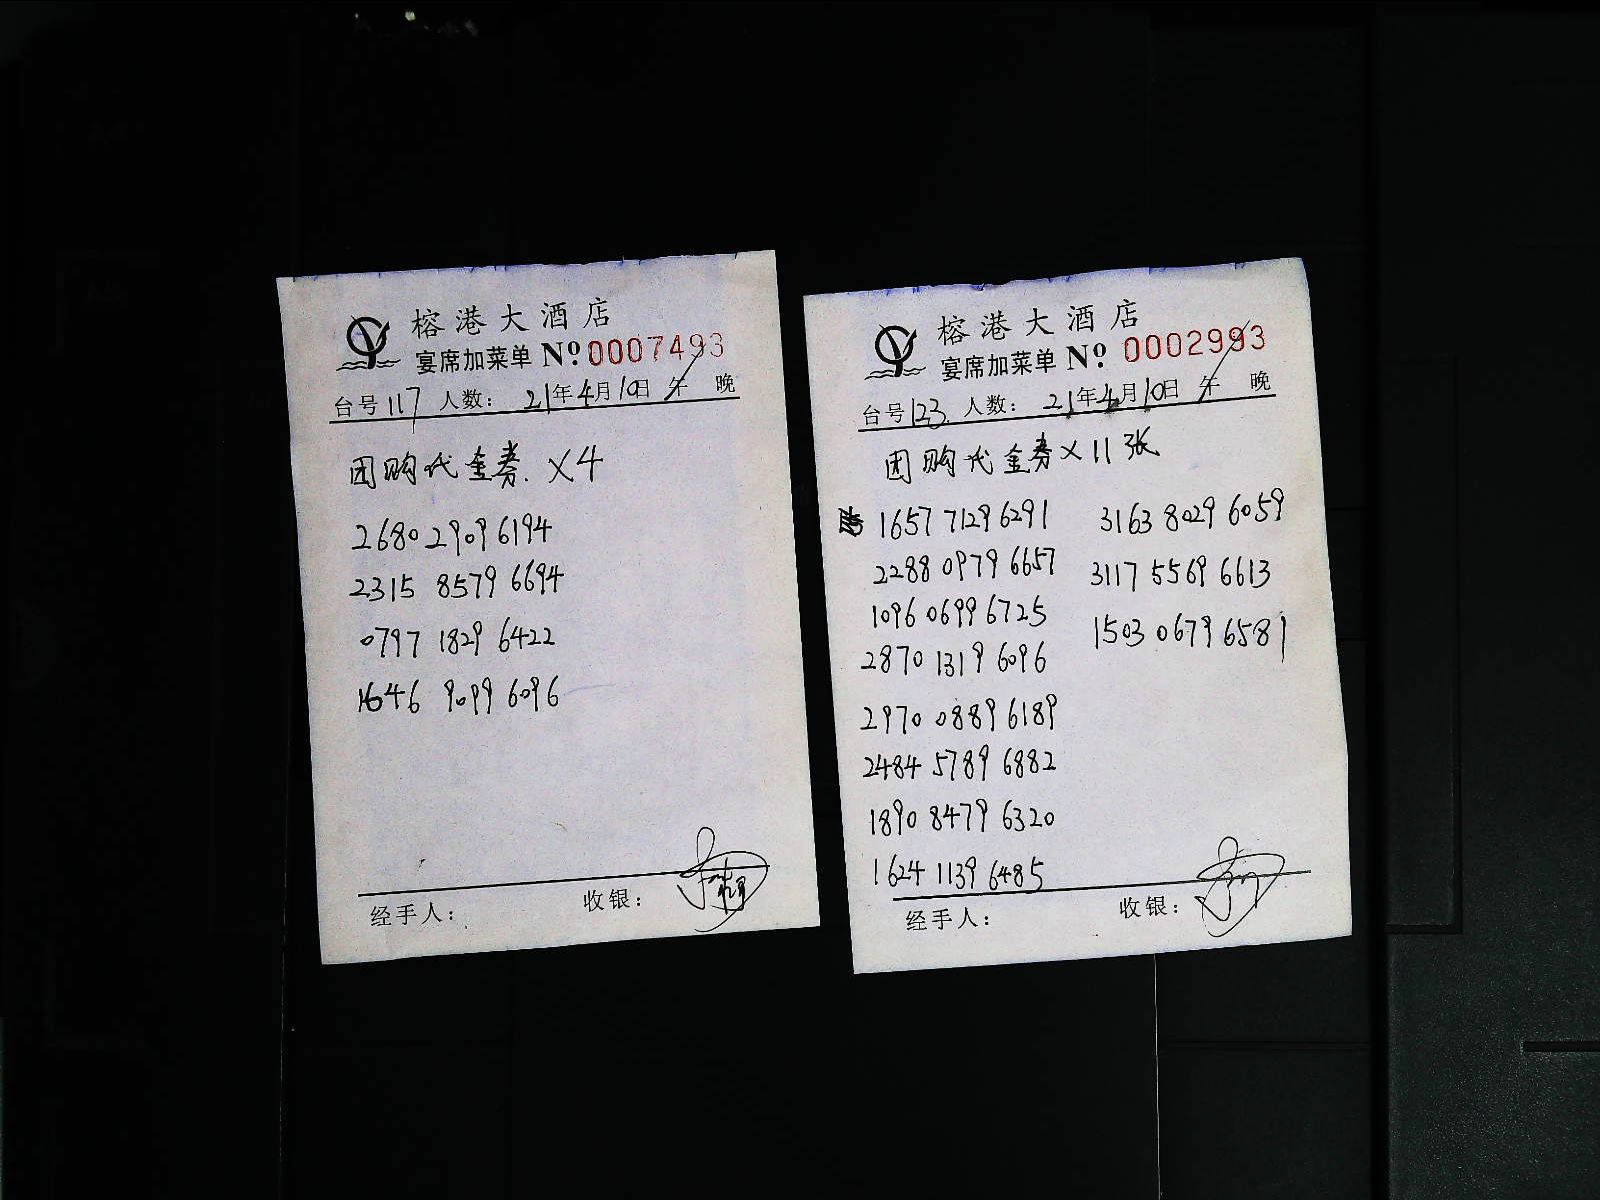 榕港大酒店
宴席加菜单 Nº 0007493
台号 117 人数： 21年4月10日 午 晚
团购代金券. ×4
2680 2909 6194
2315 8579 6694
0797 1829 6422
1646 9099 6096
经手人： 收银：
榕港大酒店
宴席加菜单 Nº 0002993
台号 123. 人数： 21年4月10日 午 晚
团购代金券×11张
1657 7129 6291
2288 0979 6657
1096 0699 6725
2870 1319 6096
2970 0889 6189
2484 5789 6882
1890 8479 6320
1624 1139 6485
3163 8029 6059
3117 5569 6613
1503 0679 6581
经手人： 收银：